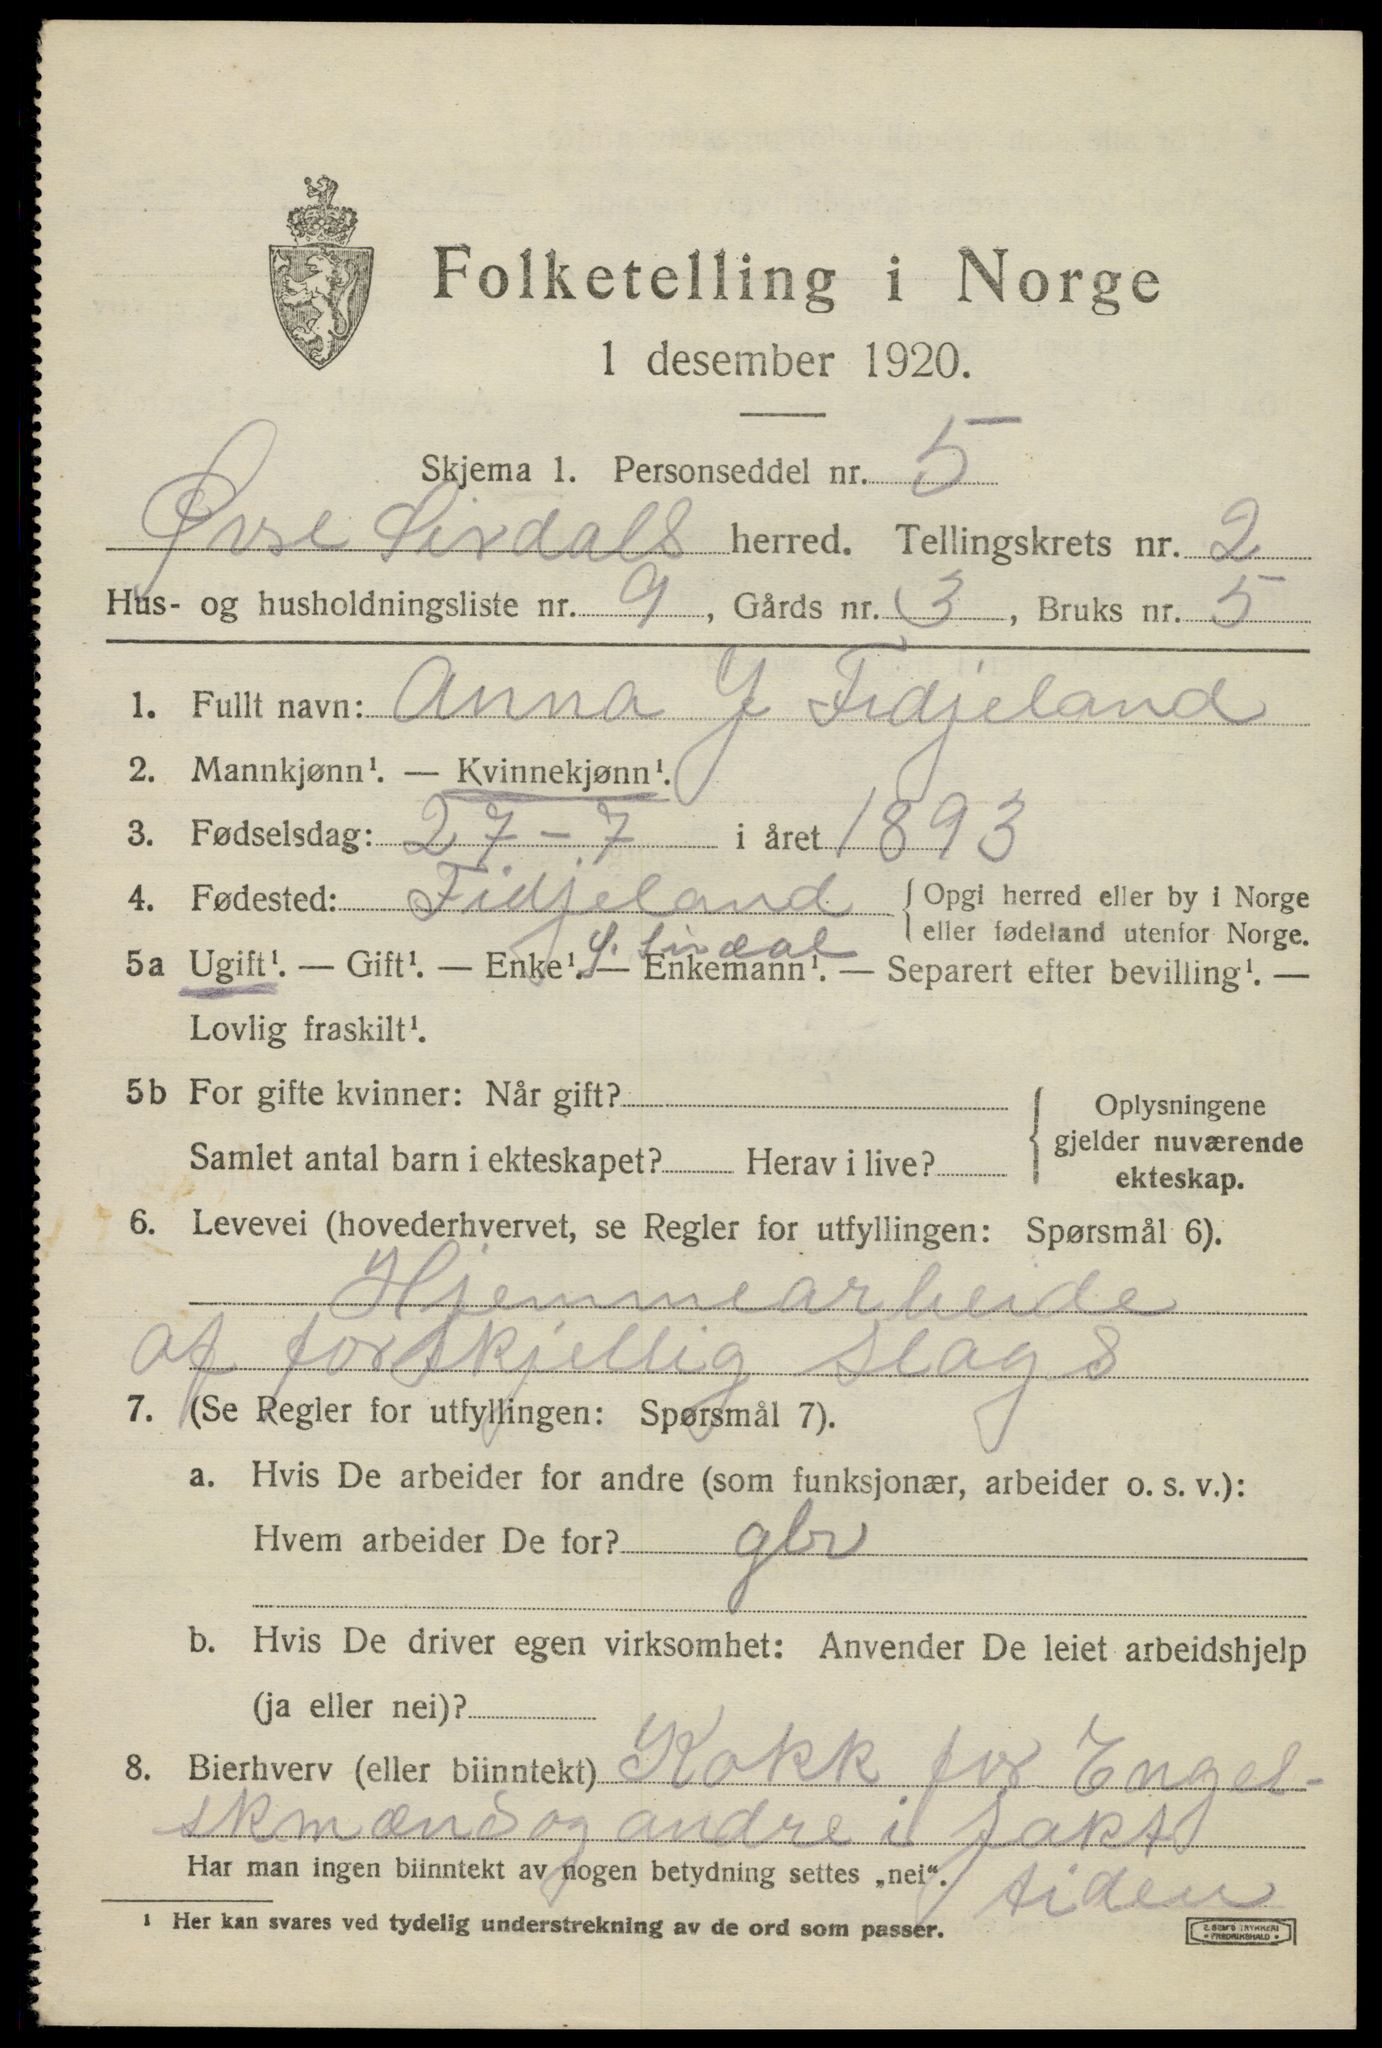 Folketelling i Norge
1 desember 1920.
Skjema 1. Personseddel nr. 5
Øvre Sirdals herred. Tellingskrets nr. 2
Hus- og husholdningsliste nr. 9, Gårds nr. 3, Bruks nr. 5
1. Fullt navn: Anna J Fidjeland
2. Mannkjønn¹. — Kvinnekjønn¹.
3. Fødselsdag: 27-7 i året 1893
4. Fødested: Fidjeland { Opgi herred eller by i Norge
eller fødeland utenfor Norge.
Ø. Sirdal
5a Ugift¹. — Gift¹. — Enke¹. — Enkemann¹. — Separert efter bevilling¹. —
Lovlig fraskilt¹.
5b For gifte kvinner: Når gift?
Samlet antal barn i ekteskapet? Herav i live?
{ Oplysningene
gjelder nuværende
ekteskap.
6. Levevei (hovederhvervet, se Regler for utfyllingen: Spørsmål 6).
Hjemmearbeide
af forskjellig slags
7. (Se Regler for utfyllingen: Spørsmål 7).
a. Hvis De arbeider for andre (som funksjonær, arbeider o. s. v.):
Hvem arbeider De for? gbr
b. Hvis De driver egen virksomhet: Anvender De leiet arbeidshjelp
(ja eller nei)?
8. Bierhverv (eller biinntekt) Kokk for Engel-
skmænd og andre i jakt
tiden
Har man ingen biinntekt av nogen betydning settes „nei“.
¹ Her kan svares ved tydelig understrekning av de ord som passer.
E. SEM'S TRYKKERI
• FREDRIKSHALD •